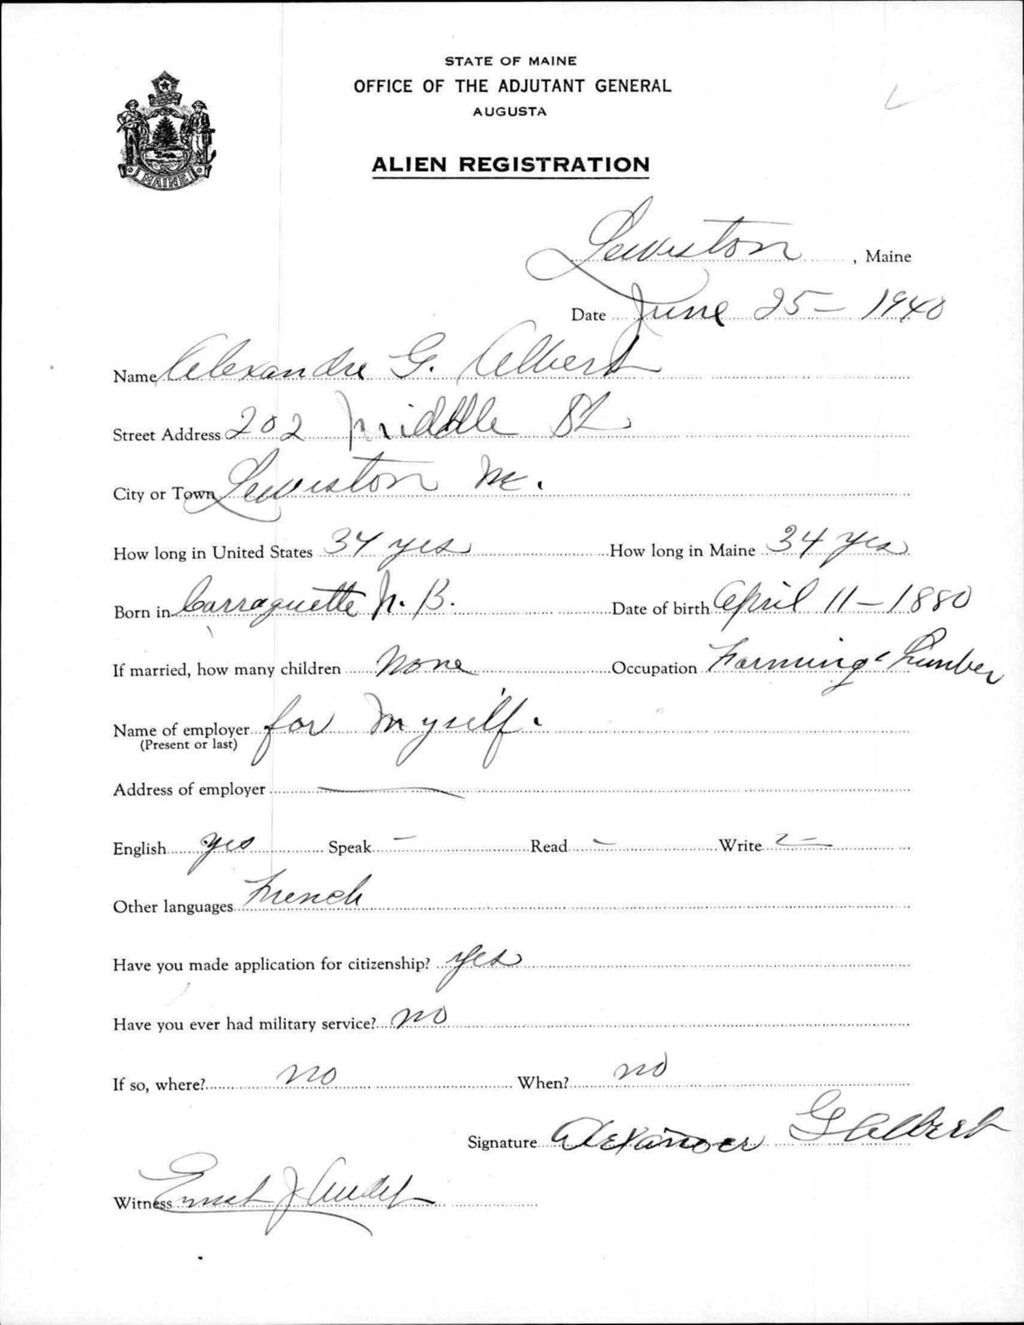 STATE OF MAINE
OFFICE OF THE ADJUTANT GENERAL
AUGUSTA
ALIEN REGISTRATION
MAINE
Lewiston, Maine
Date June 25 - 1940
Name Alexandre G. Albert
Street Address 202 Middle St
City or Town Lewiston Me.
How long in United States 34 yes How long in Maine 34 yes
Born in Carraguette N. B. Date of birth April 11 - 1880
If married, how many children None Occupation Farming & Lumber
Name of employer for myself.
(Present or last)
Address of employer —
English yes Speak - Read - Write -
Other languages French
Have you made application for citizenship? yes
Have you ever had military service? no
If so, where? no When? no
Signature Alexander G Albert
Witness Ernest J